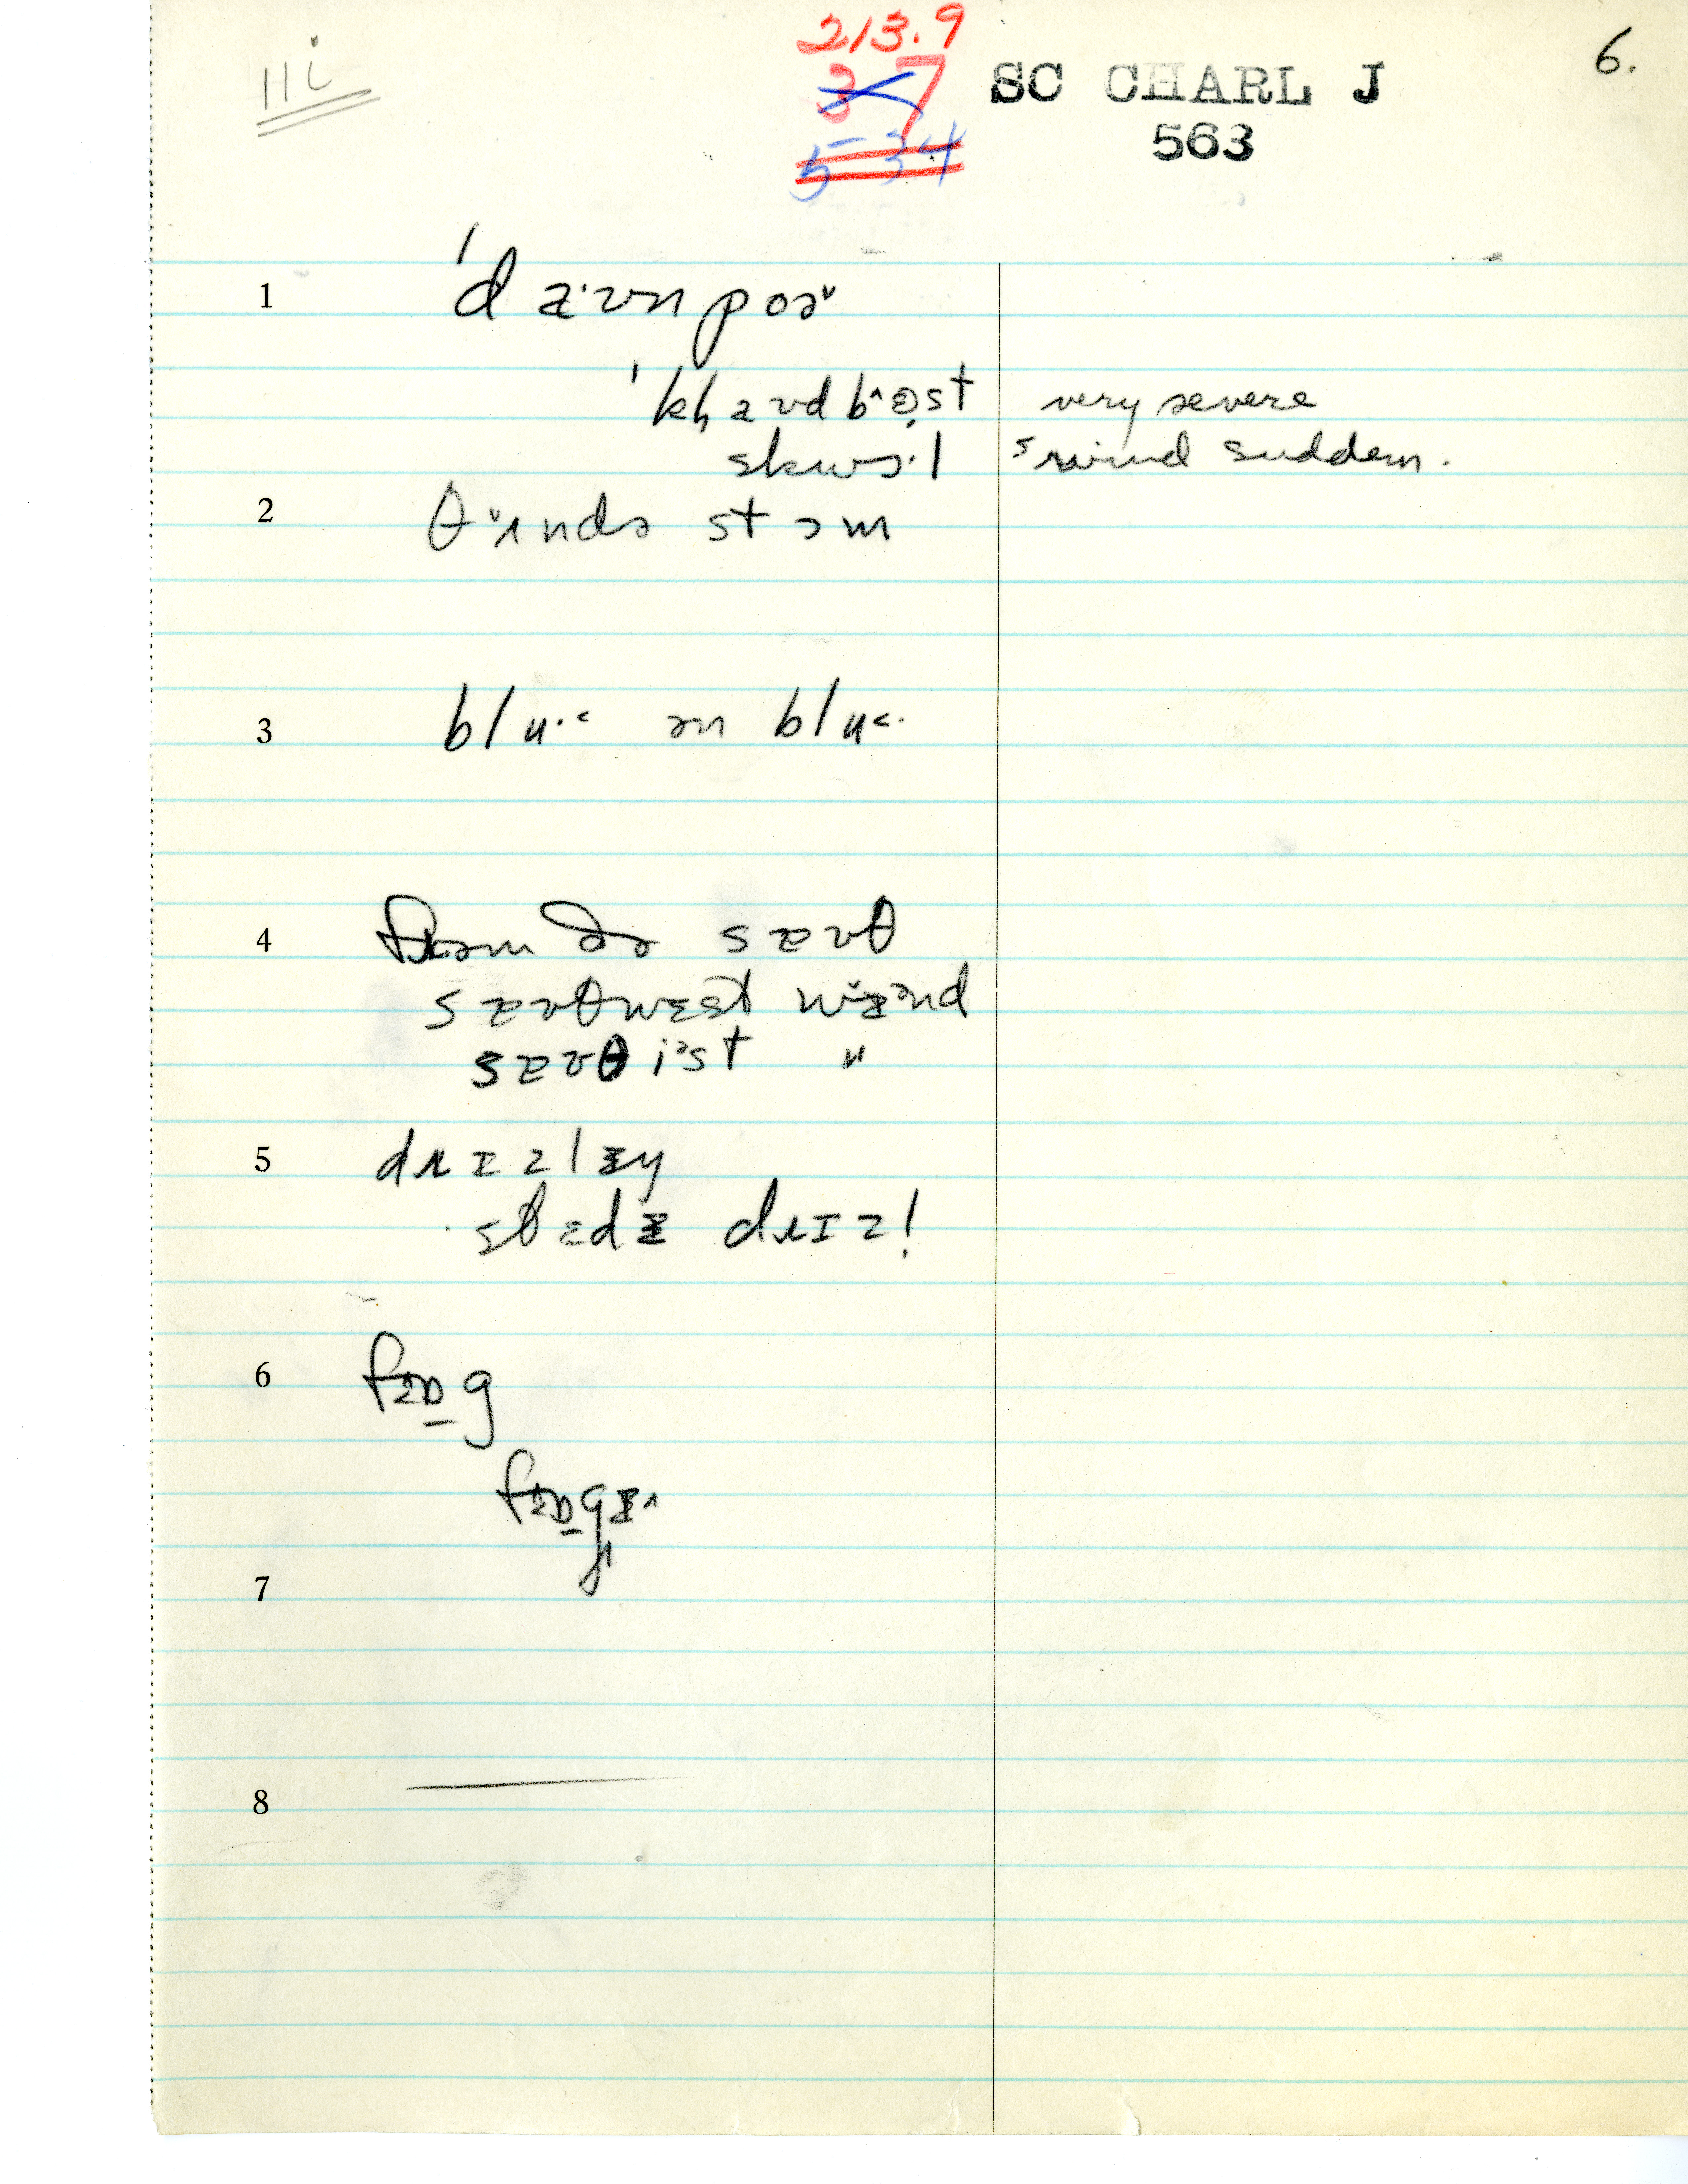 iii
213.9
3 7
5 34
SC CHARL J
563
6.
1 ˈd aˑʊn poəᵛ
ˈkh aʊd bɜst very severe
skwɔˑl wind sudden.
2 θʌndə stɔm
3 bluˑ ɔn blu
4 frəm ðə saʊθ
saʊθwɛst wɪnd
saʊθ ist "
5 drɪzlɪy
stɛdɪ drɪzl
6 fɒg
fɒgɪ
7
8